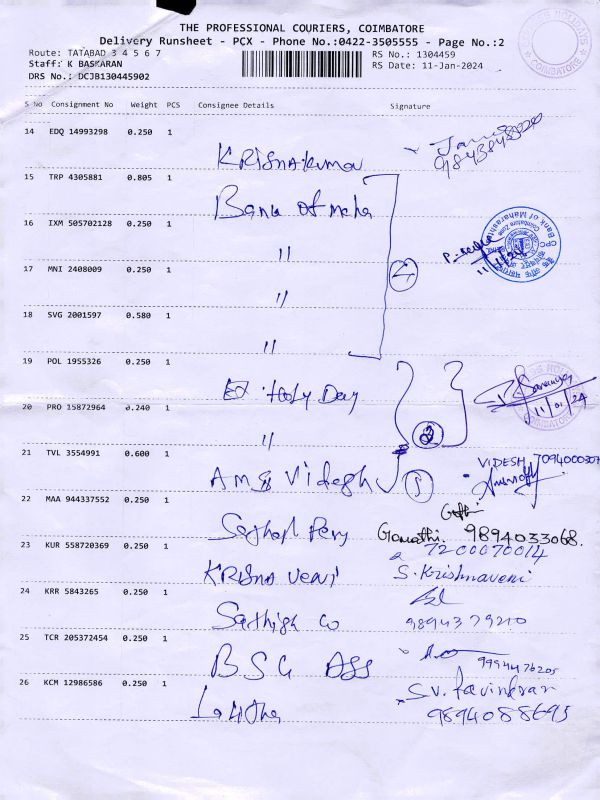 THE PROFESSIONAL COURIERS, COIMBATORE
Delivery Runsheet - PCX - Phone No.:0422-3505555 - Page No.:2
Route: TATABAD 3 4 5 6 7
RS No.: 1304459
Staff: K BASKARAN
RS Date: 11-Jan-2024
DRS No.: DCJB130445902
S No Consignment No Weight PCS Consignee Details Signature
14 EDQ 14993298 0.250 1
Krisnakumar
15 TRP 4305881 0.805 1
Bank of maha
16 IXM 505702128 0.250 1
"
17 MNI 2408009 0.250 1
"
18 SVG 2001597 0.580 1
"
4
CPC Bank of Maharashtra
Coimbatore Zone
19 POL 1955326 0.250 1
Holy Day
11/01/24
20 PRO 15872964 0.240 1
"
2
COIMBATORE
21 TVL 3554991 0.600 1
AMS Videsh
VIDESH 7094000307
22 MAA 944337552 0.250 1
Gomathi. 9894033068.
23 KUR 558720369 0.250 1
Krisna veni
7200070014
S. Krishnaveni
24 KRR 5843265 0.250 1
Sathish Co
9894379210
25 TCR 205372454 0.250 1
BSG ASS
9994476205
26 KCM 12986586 0.250 1
Lalitha
S.V. Ravindran
9894088695